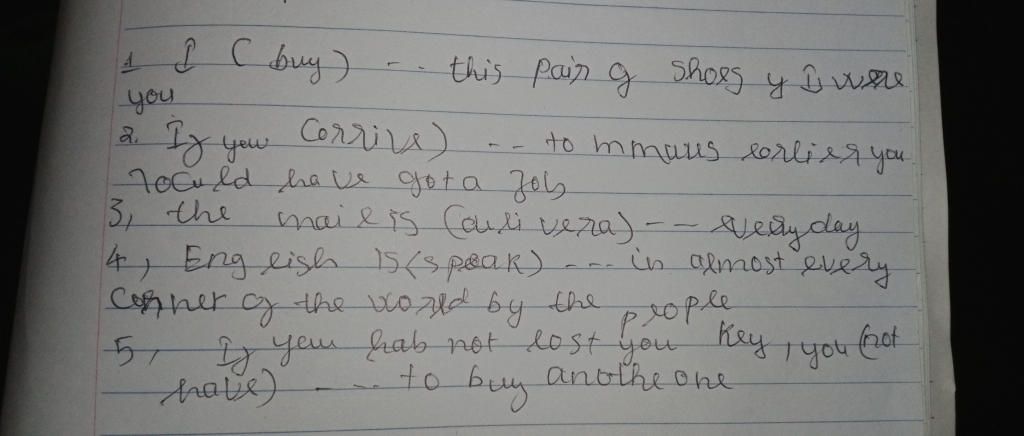 1 I (buy) -- this pair of shoes if I were
you
2. If you (arrive) -- to mmaus earlier you
would have got a Job
3, the mail is (deli vera) -- every day
4, English is (speak) --- in almost every
corner of the world by the people
5, If you hab not lost you key, you (not
have) --- to buy anothe one